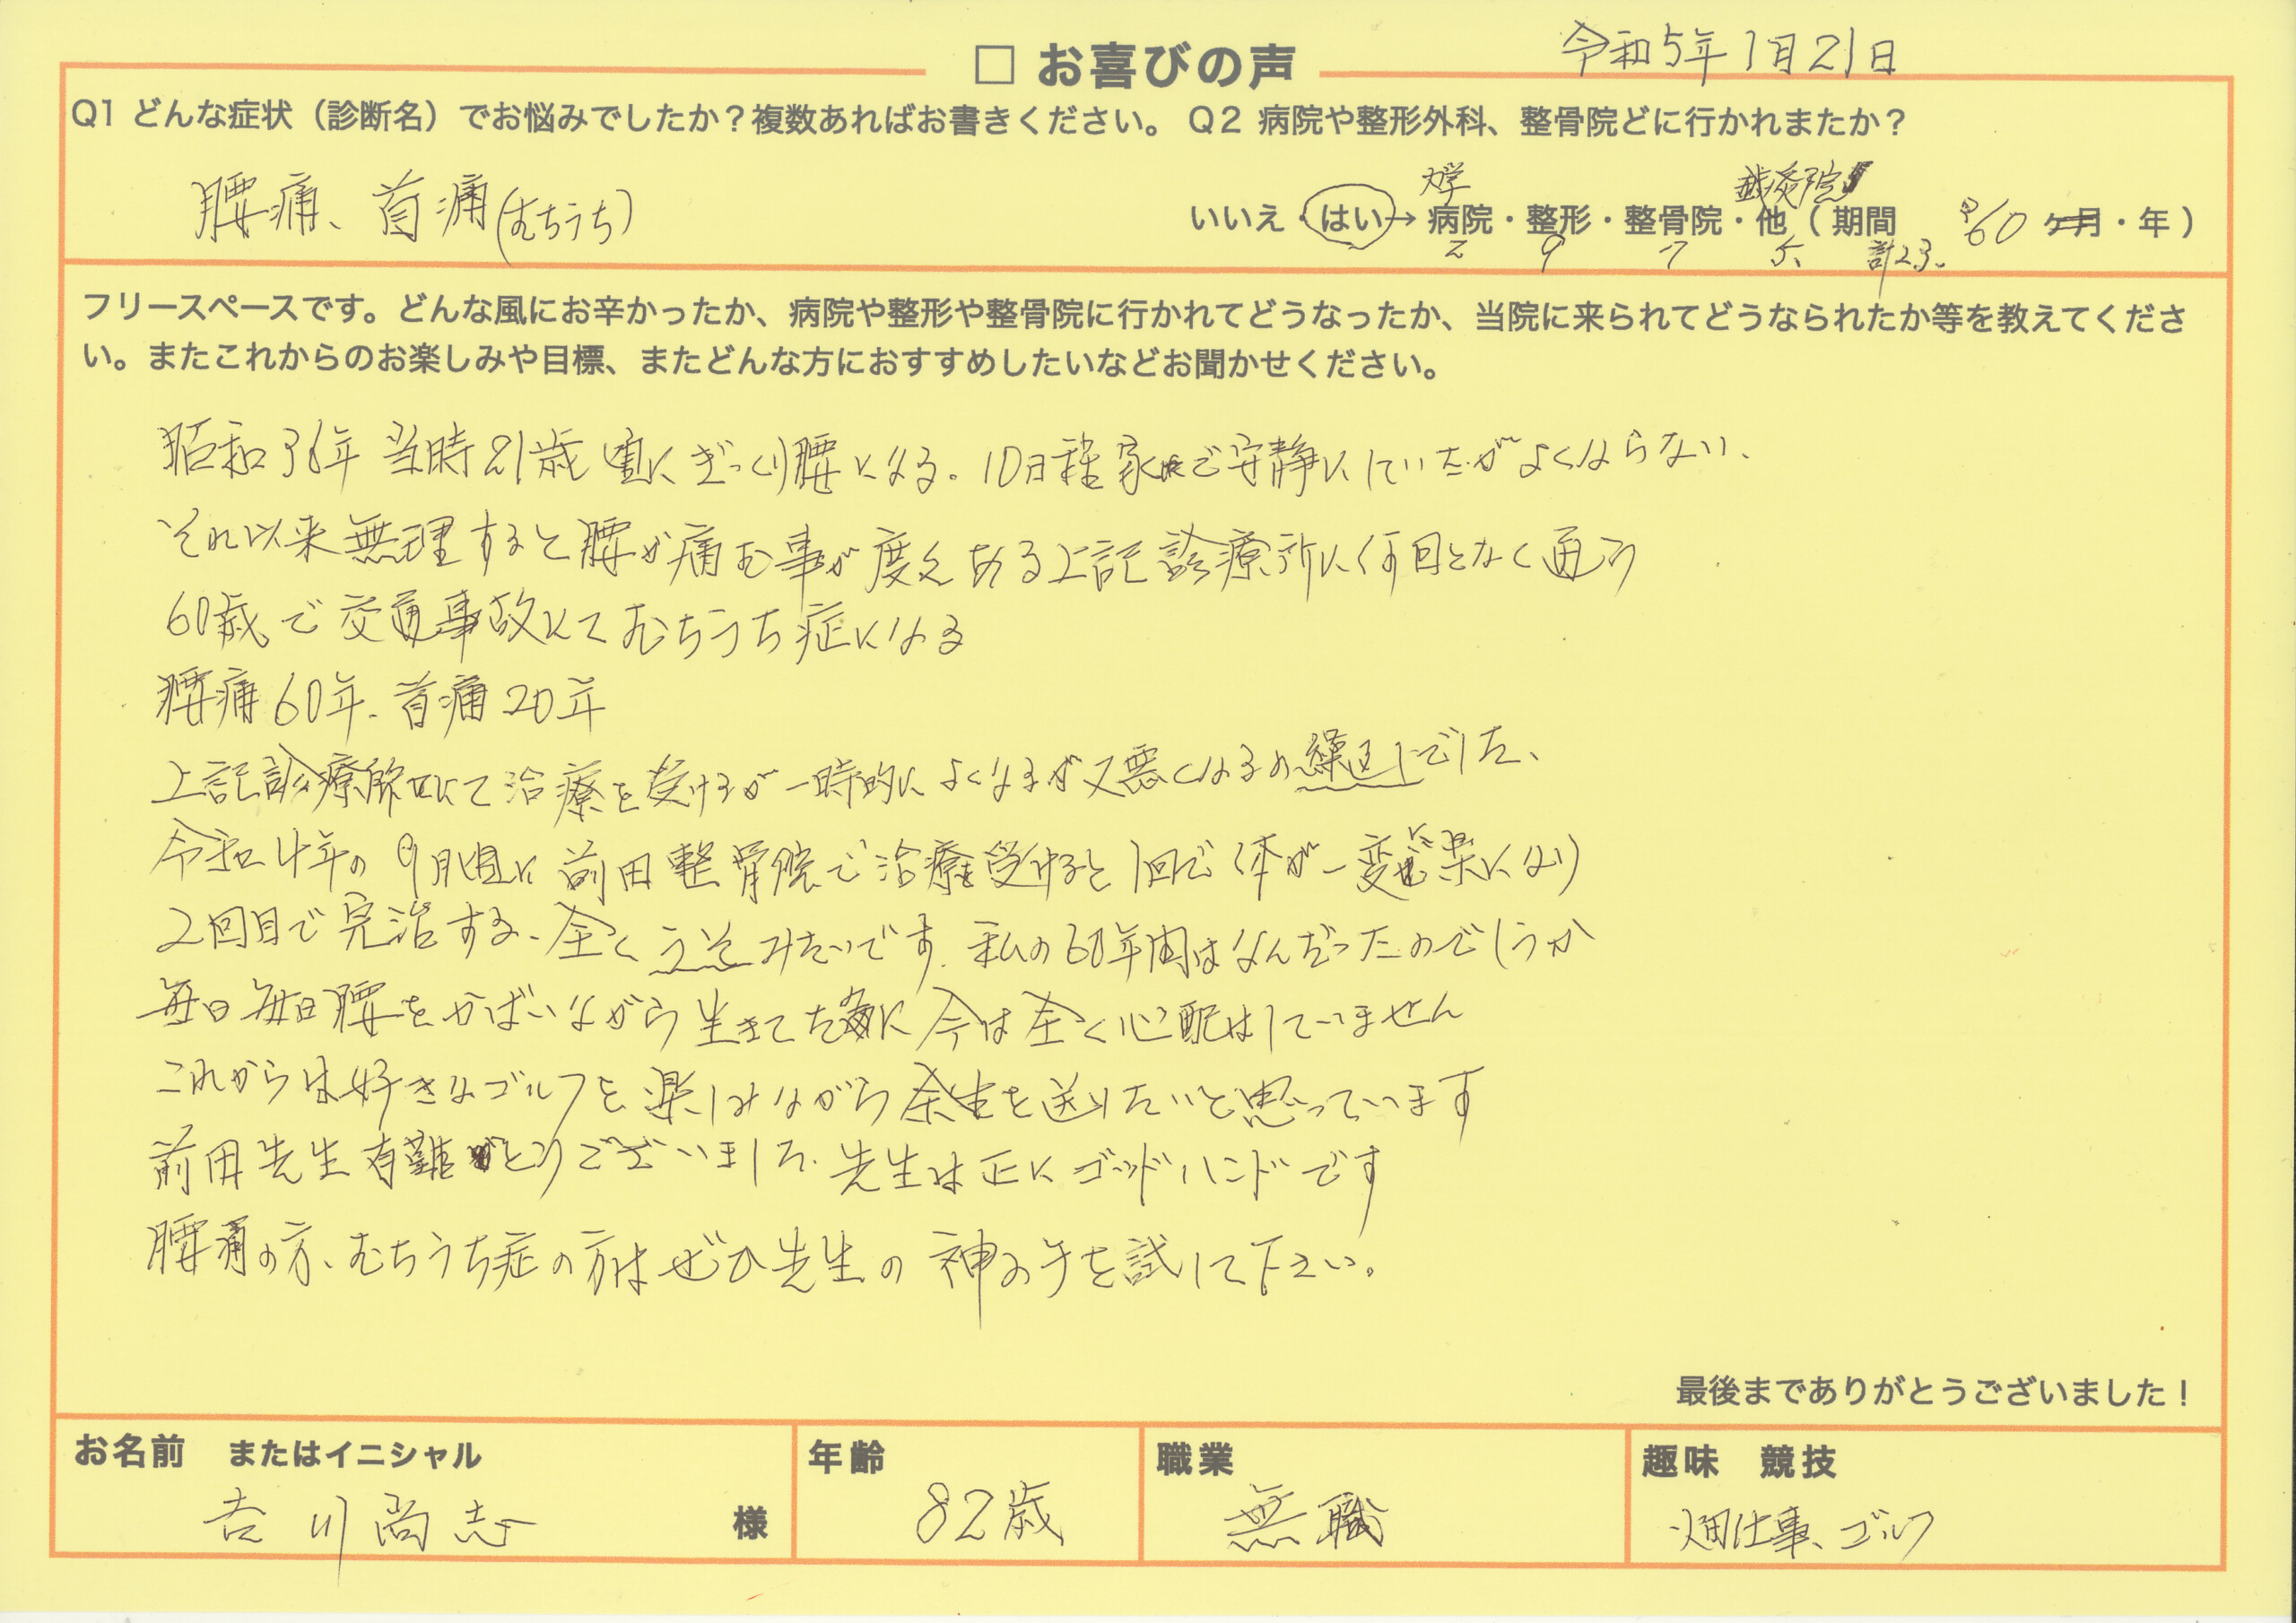 □ お喜びの声
令和5年1月21日
Q1 どんな症状（診断名）でお悩みでしたか？複数あればお書きください。 Q2 病院や整形外科、整骨院どに行かれまたか？
腰痛、首痛(むちうち)
大学 鍼灸院
いいえ・はい→ 病院・整形・整骨院・他（ 期間 約60 ヶ月・年 ）
2 9 7 5、 計23、
フリースペースです。どんな風にお辛かったか、病院や整形や整骨院に行かれてどうなったか、当院に来られてどうなられたか等を教えてくださ
い。またこれからのお楽しみや目標、またどんな方におすすめしたいなどお聞かせください。
昭和36年 当時21歳頃にぎっくり腰になる。10日程家で安静にしていたがよくならない、
それ以来無理すると腰が痛む事が度々ある上記診療所に何回となく通う
60歳で交通事故にてむちうち症になる
腰痛60年、首痛20年
上記診療所にて治療を受けるが一時的によくなるが又悪くなるの繰返しでした、
令和4年の9月頃に前田整骨院で治療を受けると1回で体が一変に楽になり
2回目で完治する、全くうそみたいです、私の60年間はなんだったのでしょうか
毎日毎日腰をかばいながら生きてた為に今は全く心配はしていません
これからは好きなゴルフを楽しみながら余生を送りたいと思っています
前田先生有難とうございました、先生は正にゴッドハンドです
腰痛の方、むちうち症の方はぜひ先生の神の手を試して下さい。
最後までありがとうございました！
お名前 またはイニシャル
吉川尚志 様
年齢
82歳
職業
無職
趣味 競技
畑仕事、ゴルフ